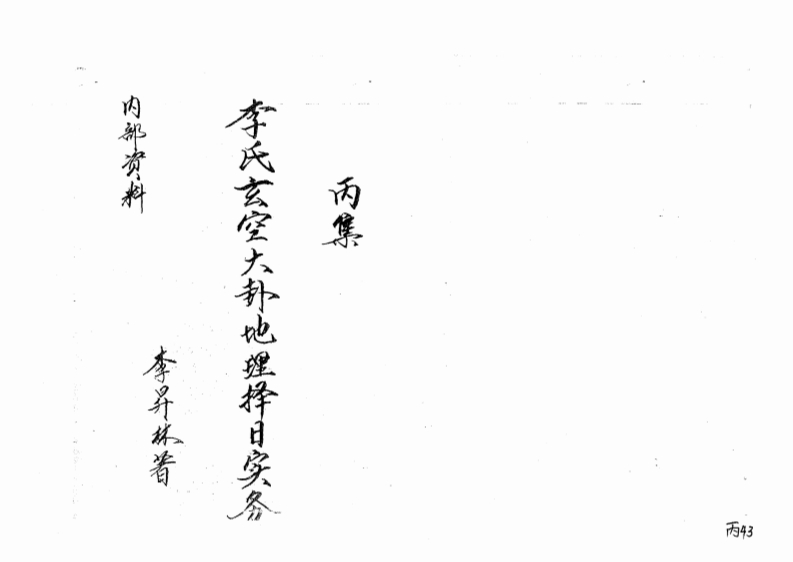 丙集
李氏玄空大卦地理择日实务
内部资料
李昇林著
丙43